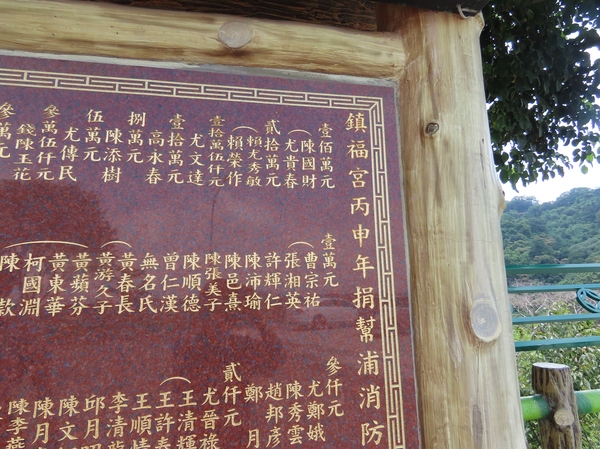 鎮福宮丙申年捐幫浦消防
壹佰萬元
陳國財
尤貴春
貳拾萬元
賴尤秀敏
賴榮作
壹拾萬伍仟元
尤文達
壹拾萬元
高永春
捌萬元
陳添樹
伍萬元
尤傳民
參萬伍仟元
錢陳玉花
參萬元
壹萬元
曹宗祐
張湘英
許輝仁
陳沛瑜
陳邑熹
陳張美子
陳順德
曾仁漢
無名氏
黃春長
黃游久子
黃蘋芬
黃東華
柯國淵
陳款
參仟元
尤鄭娥
陳秀雲
趙邦彥
鄭月
貳仟元
尤晉祿
王清輝
王許春
王順情
李清龍
邱月昭
陳文
陳月
陳李燕